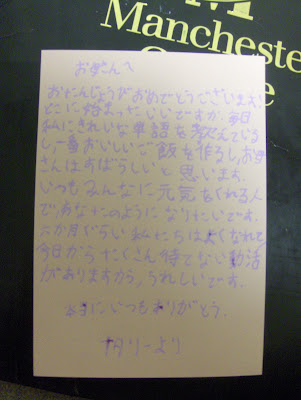 Manchester
お母さんへ
おたんじょうがおめでとうございます!
どこに始まったいいですか、毎日
私にきれいな単語を教えている
し、一番おいしいご飯を作るし、お母
さんはすばらしいと思います。
いつもみんなに元気をくれる人
で、あなたのようになりたいです。
六か月ぐらい私たちはよくなれて、
今日からたくさん待てない動活
がありますから、うれしいです。
本当にいつもありがとう.
リーより